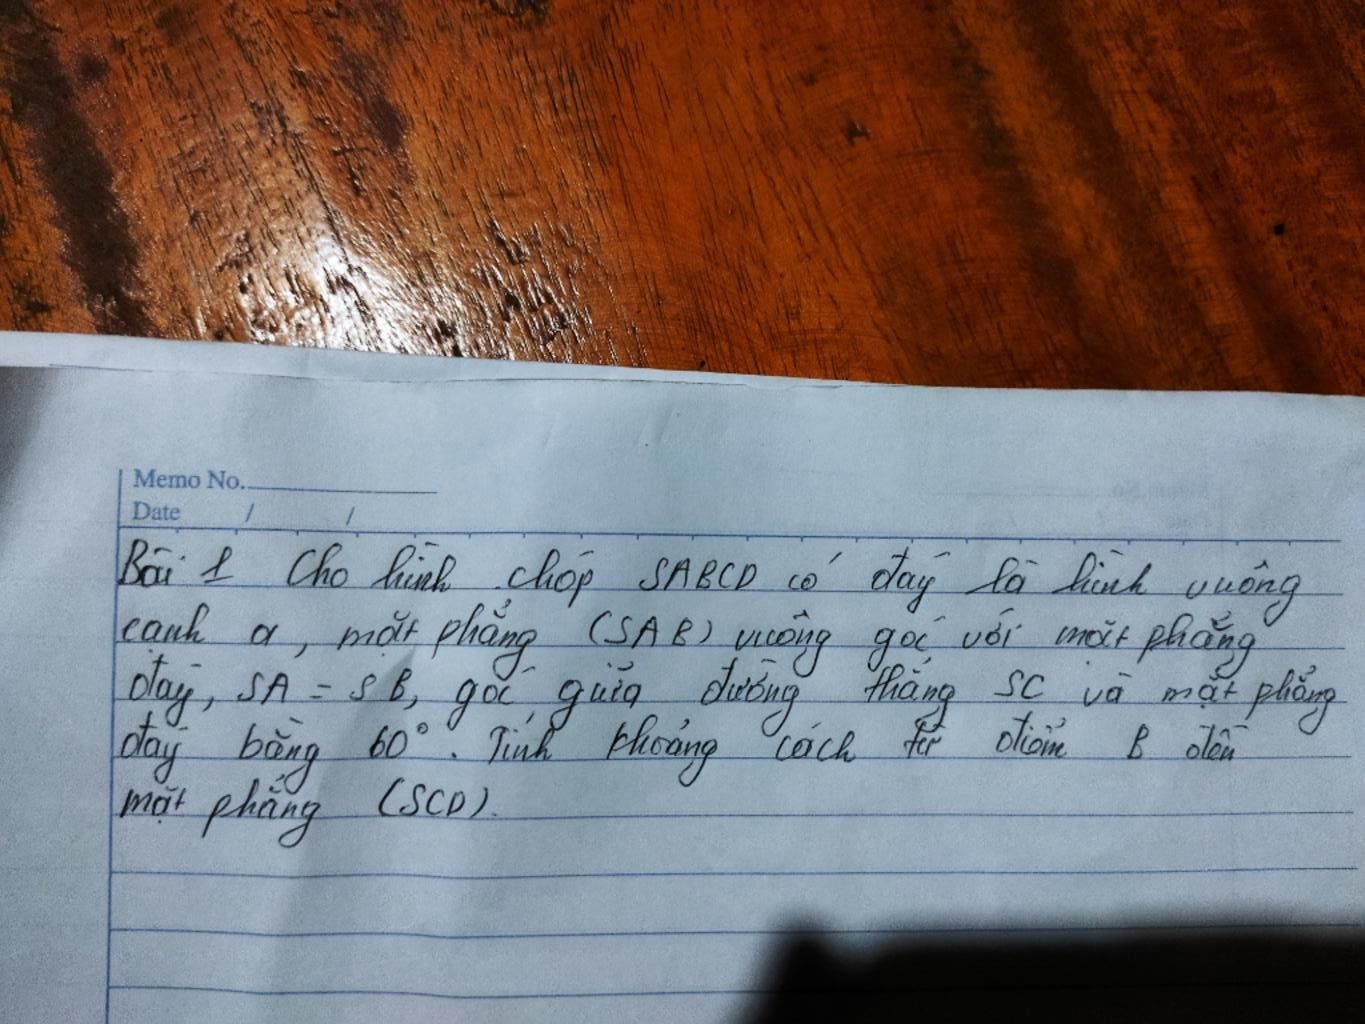 Memo No.
Date / /
Bài 1 Cho hình chóp SABCD có đáy là hình vuông
cạnh a, mặt phẳng (SAB) vuông góc với mặt phẳng
đáy, SA = SB, góc giữa đường thẳng SC và mặt phẳng
đáy bằng 60°. Tính khoảng cách từ điểm B đến
mặt phẳng (SCD).